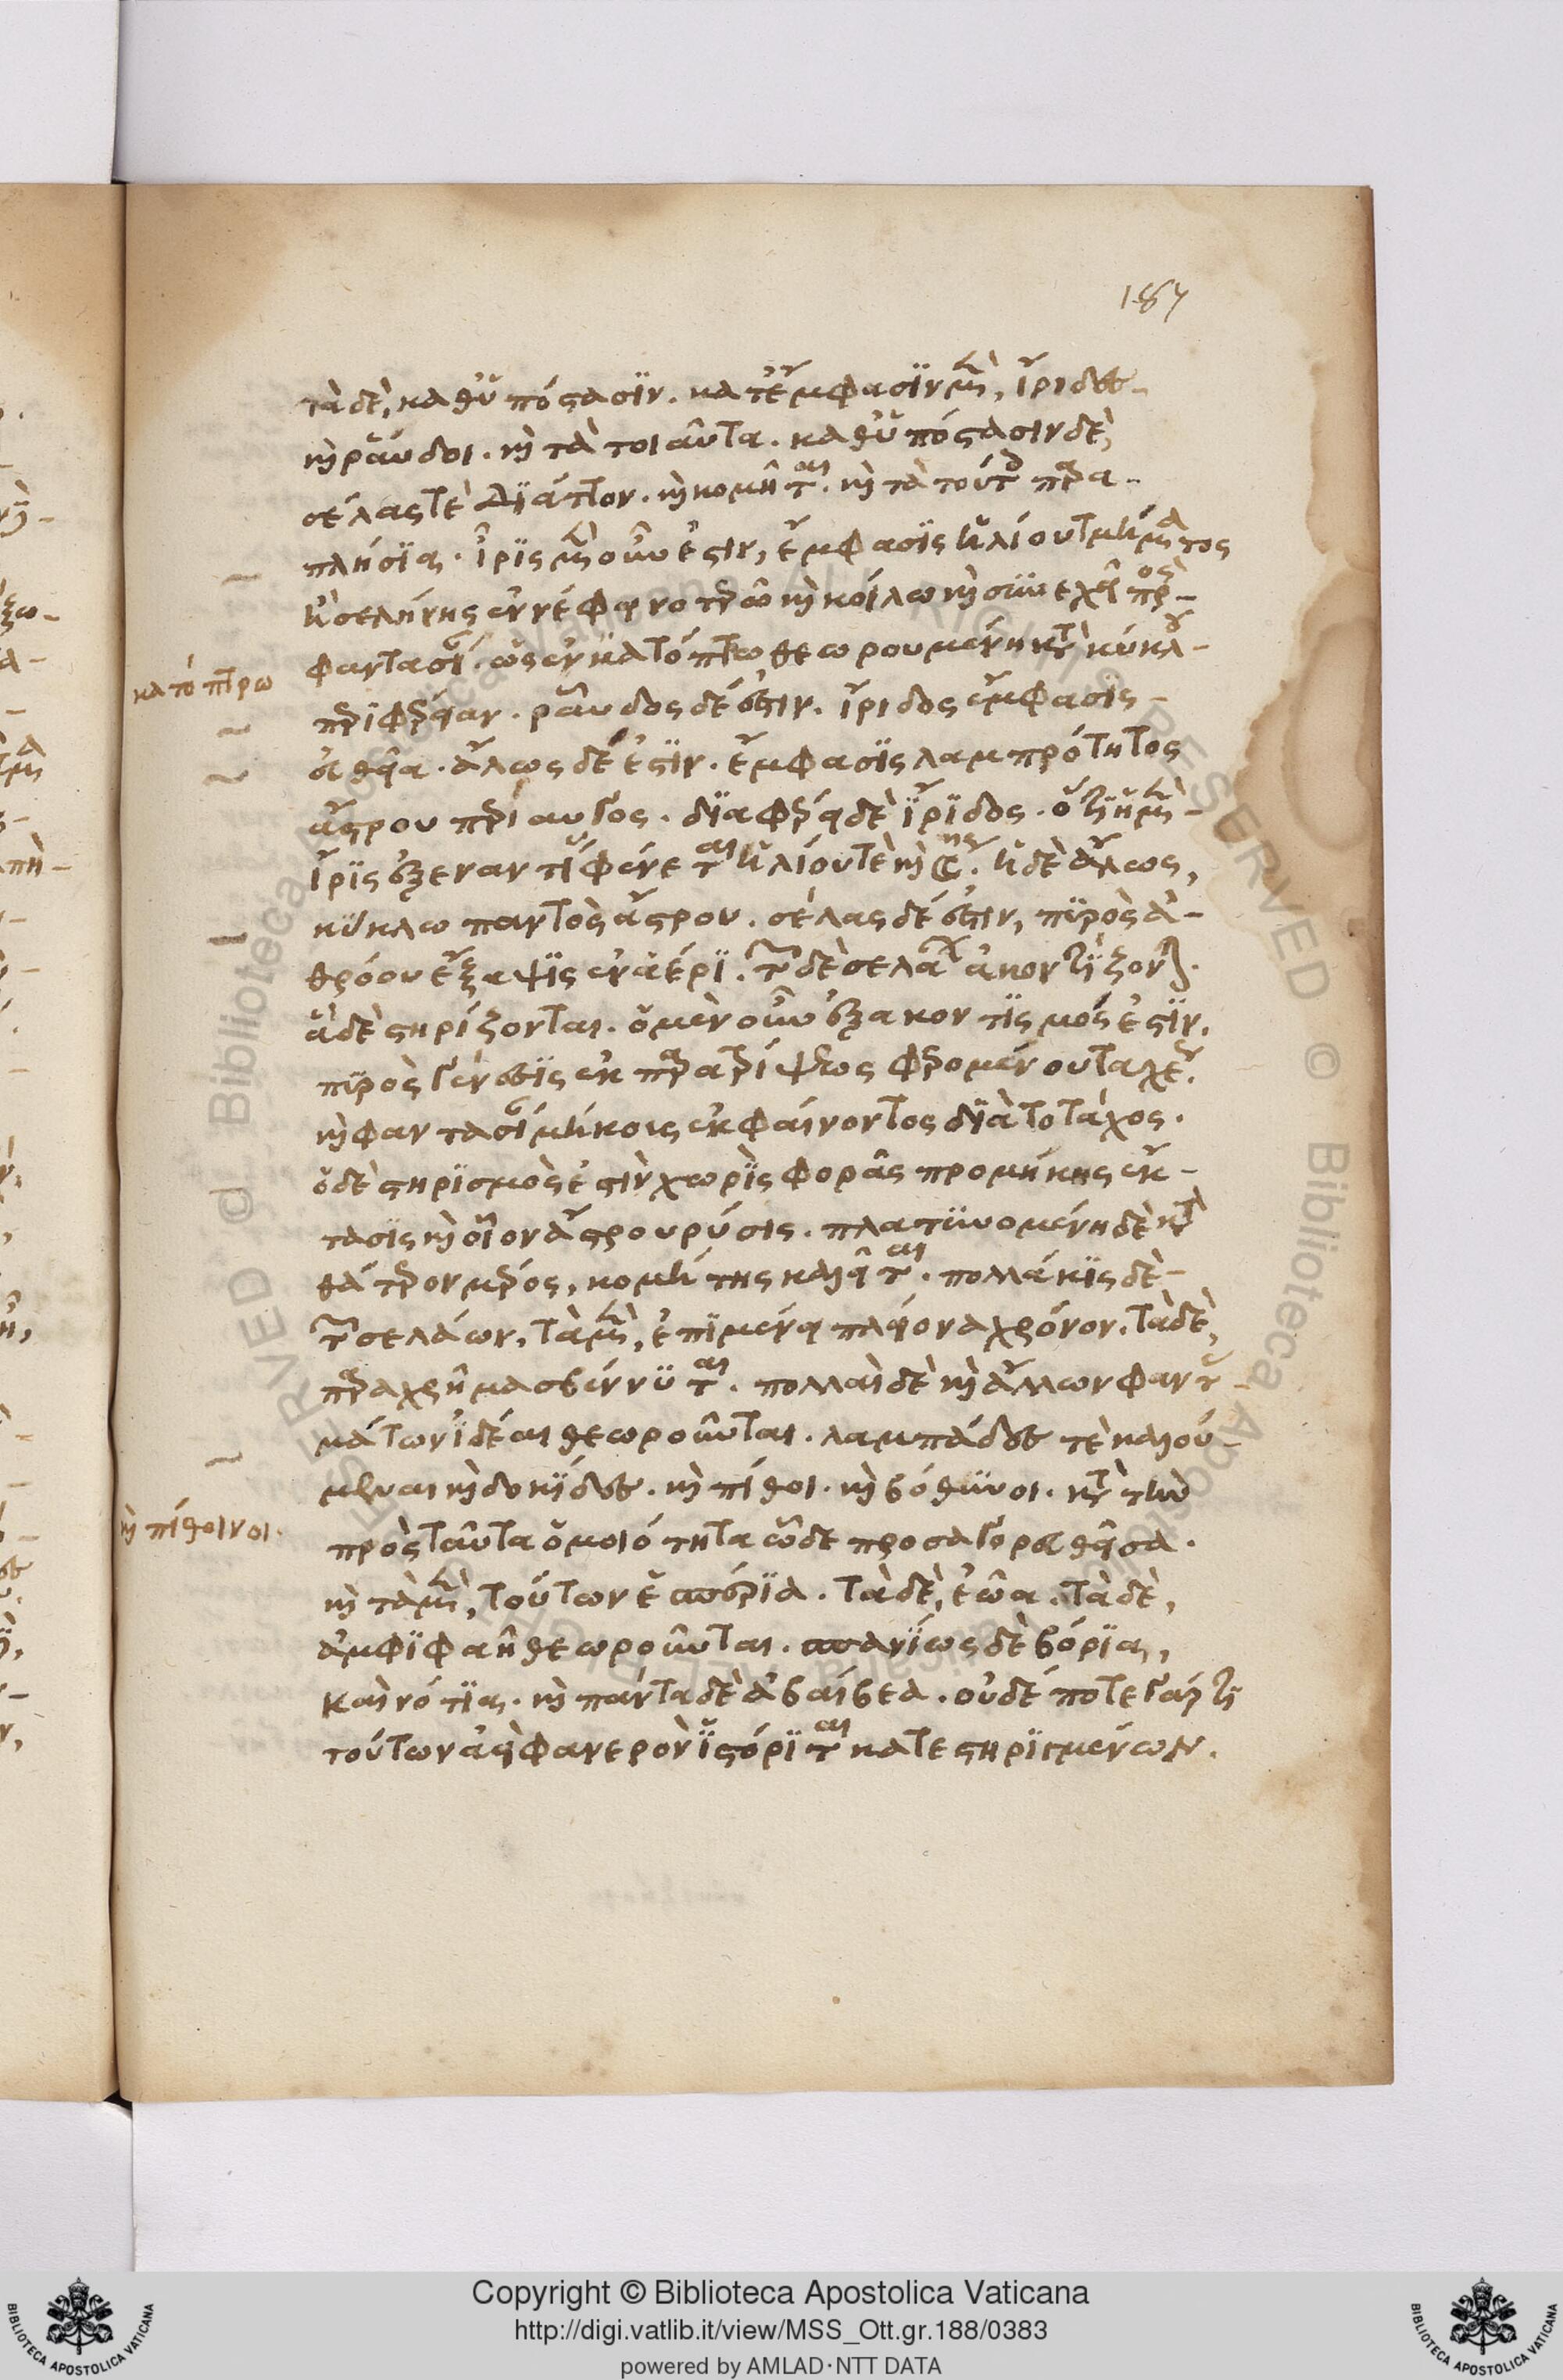 187
τὰ δὲ, καθ' ὑπόστασιν. κατ' ἔμφασιν μὲν, ἴριδες
καὶ ῥάβδοι. καὶ τὰ τοιαῦτα. καθ' ὑπόστασιν δὲ,
σέλας τὲ διάττον. καὶ κομῆται. καὶ τὰ τούτοις παρα-
πλήσια. ἶρις μὲν οὖν ἐστιν, ἔμφασις ἡλίου τμήματος
ἢ σελήνης ἐν νέφει νοτερῶ καὶ κοίλω καὶ συνεχεῖ πρὸς
φαντασίαν. ὡς ἐν κατόπτω θεωρουμένη κατὰ κύκλου
κατόπτρω
περιφέρειαν. ῥάβδος δέ ἐστιν. ἴριδος ἔμφασις
εὐθεῖα. ἅλως δέ ἐστιν. ἔμφασις λαμπρότητος
ἄστρου περίαυγος. διαφέρει δὲ ἴριδος. ὅτι ἡ μὲν
ἶρις ἐξεναντί φαίνεται ἡλίου τὲ καὶ σελήνης. ἡ δὲ ἅλεως,
κύκλω παντὸς ἄστρου. σέλας δέ ἐστιν, πυρὸς ἀ-
θρόου ἔξαψις ἐν ἀέρι. τῶν δὲ σελάων ἃ ἀκοντίζονται.
ἃ δὲ στηρίζονται. ὁ μὲν οὖν ἐξακοντισμός ἐστιν.
πυρὸς γένεσις ἐκ παρατρίψεως φερομένου ταχέως.
καὶ φαντασίαν μήκους ἐκφαίνοντος διὰ τὸ τάχος.
ὁ δὲ στηρισμὸς ἐστὶν χωρὶς φορᾶς προμήκης ἔκ-
τασις καὶ οἷον ἄστρου ρύσις. πλατυνομένη δὲ κατὰ
θάτερον μέρος, κομήτης καλεῖται. πολλάκις δὲ
τῶν σελάων, τὰ μὲν, ἐπιμένει πλείονα χρόνον. τὰ δὲ,
παραχρῆμα σβέννυται. πολλαὶ δὲ καὶ ἄλλων φαντασ-
μάτων ἰδέαι θεωροῦνται. λαμπάδες τὲ καλού-
μεναι καὶ δοκίδες. καὶ πίθοι. καὶ βόθυνοι. κατὰ τὴν
καὶ πίθοινοι.
πρὸς ταῦτα ὁμοιότητα ὧδε προσαγορευθεῖσα.
καὶ τὰ μὲν, τούτων ἑσπέρια. τὰ δὲ, ἑῶα. τὰ δὲ,
ἀμφιφαῆ θεωροῦνται. σπανίως δὲ βόρεια,
καὶ νότια. καὶ πάντα δὲ ἀβαίβεα. οὐδέποτε γάρ τι
τούτων ἀεὶ φανερὸν ἱστόριται κατεστηριγμένων.